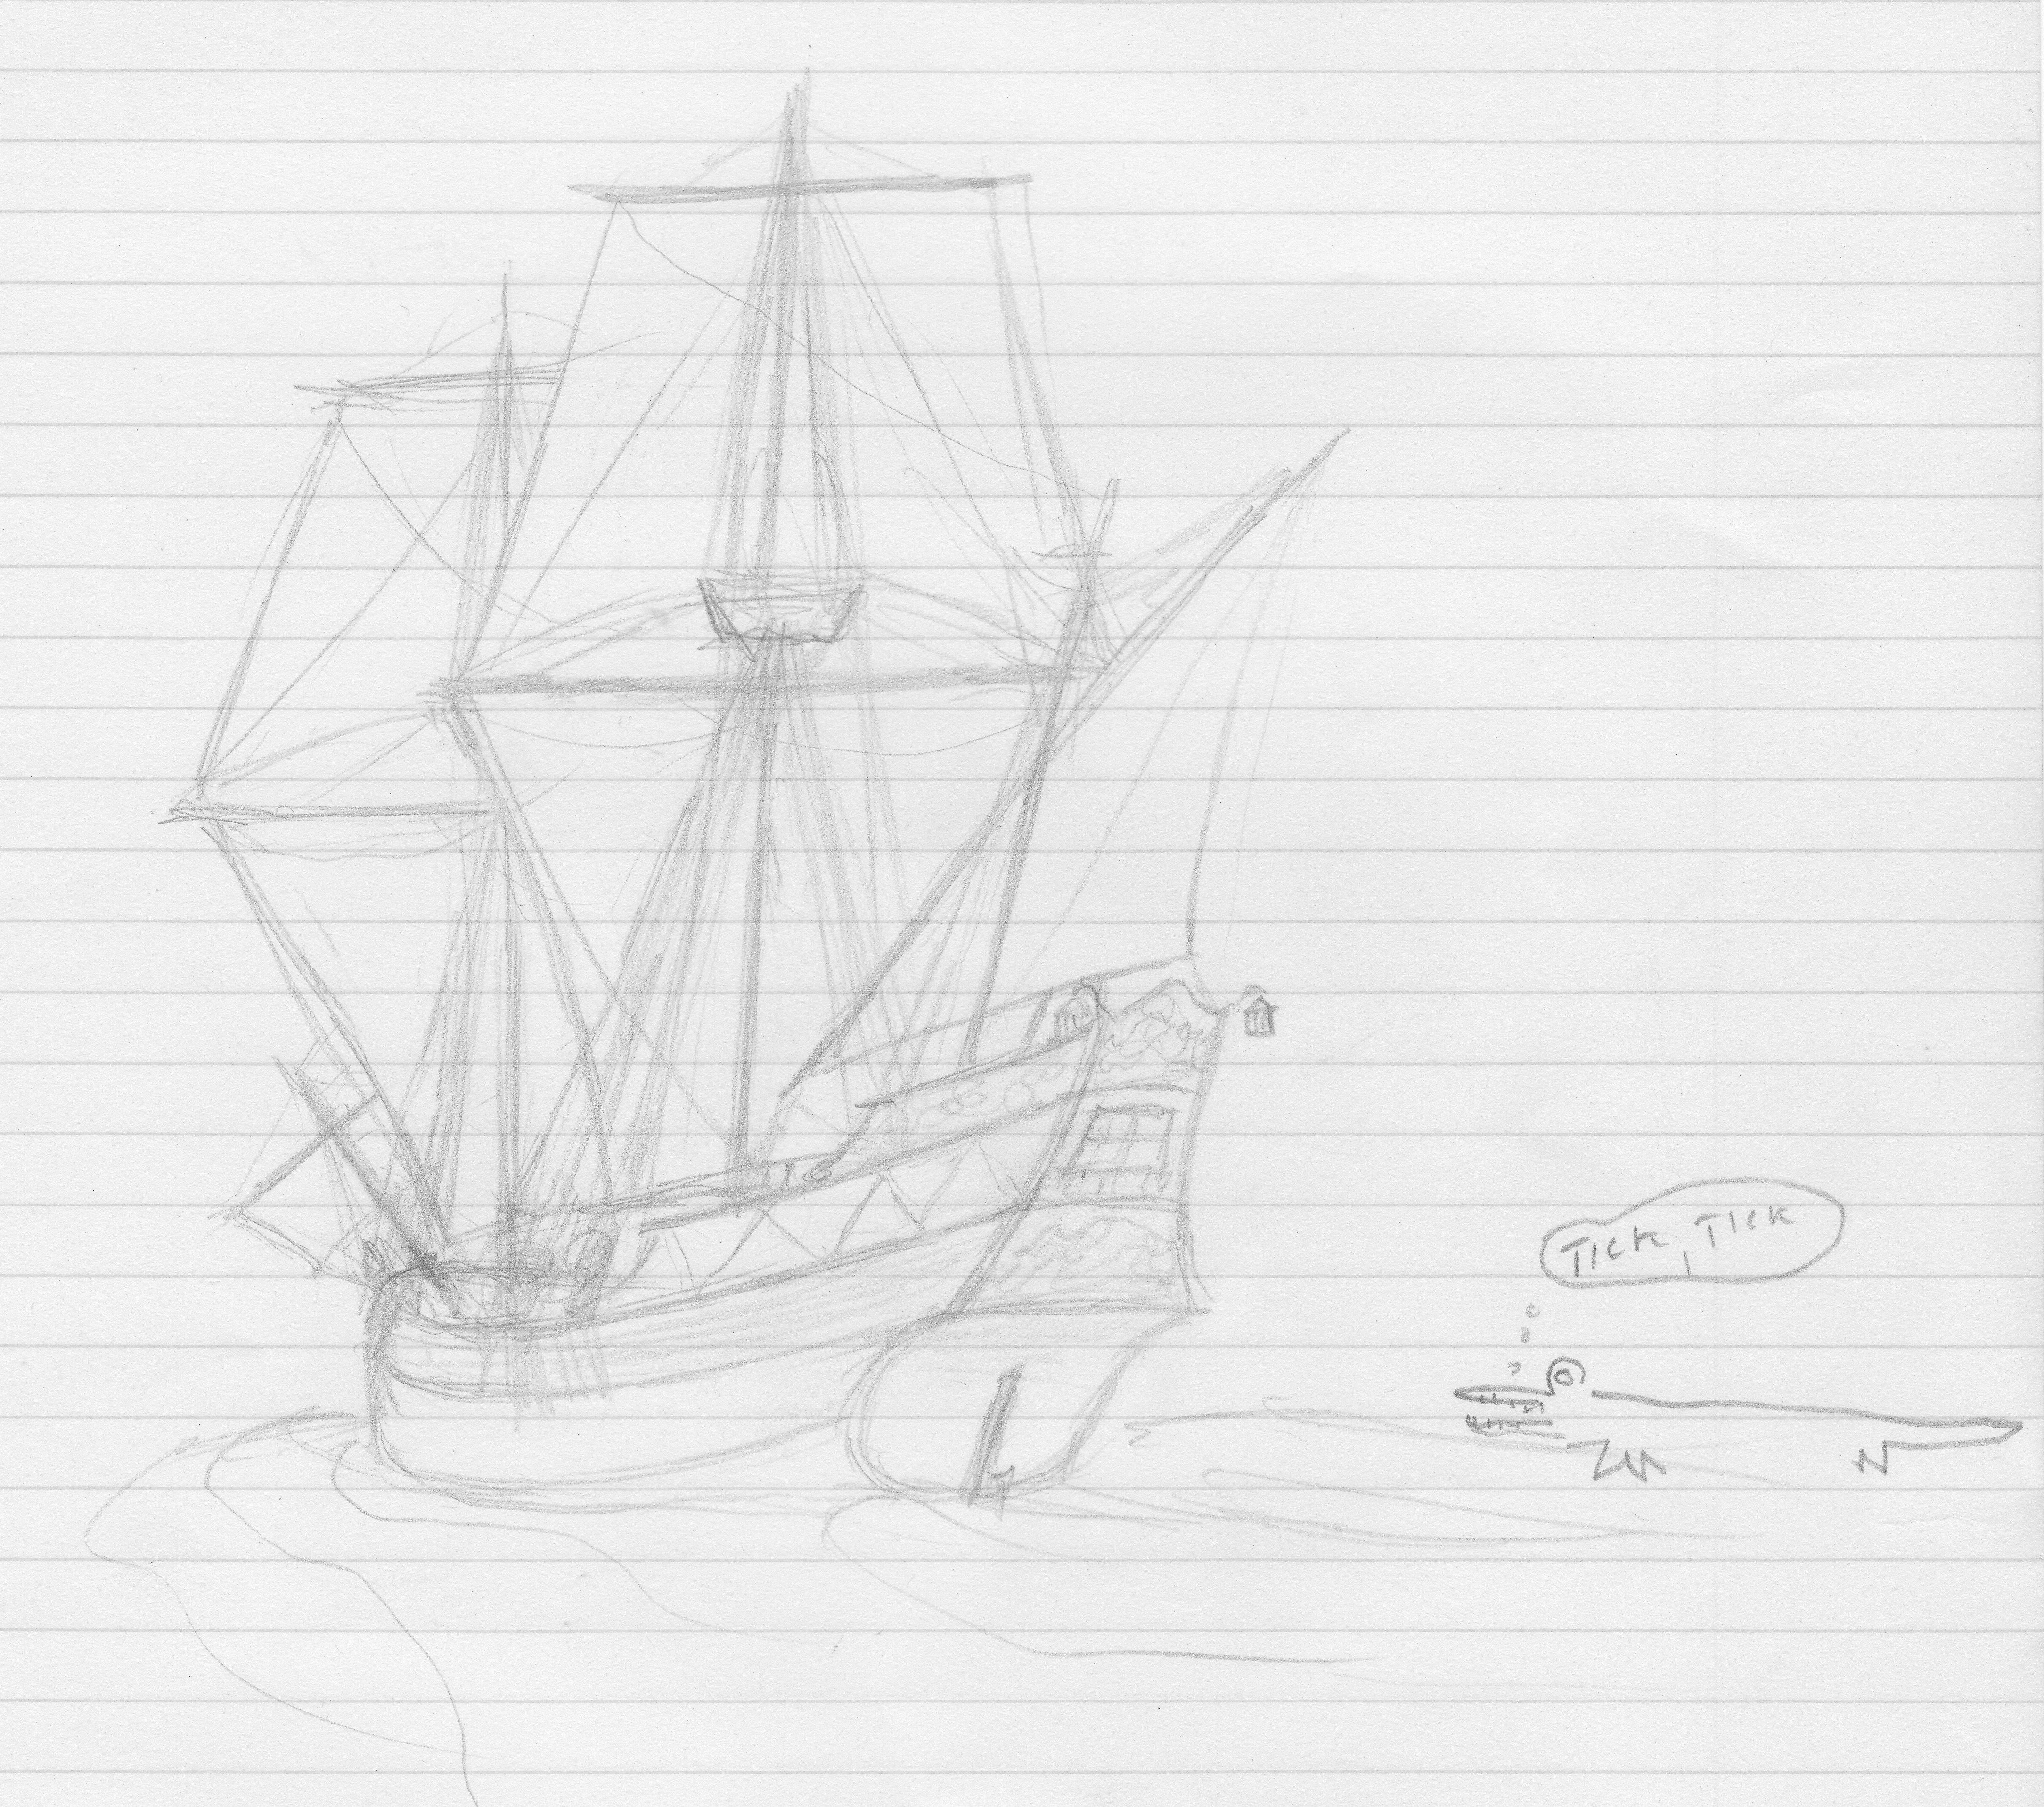 TICK, TICK